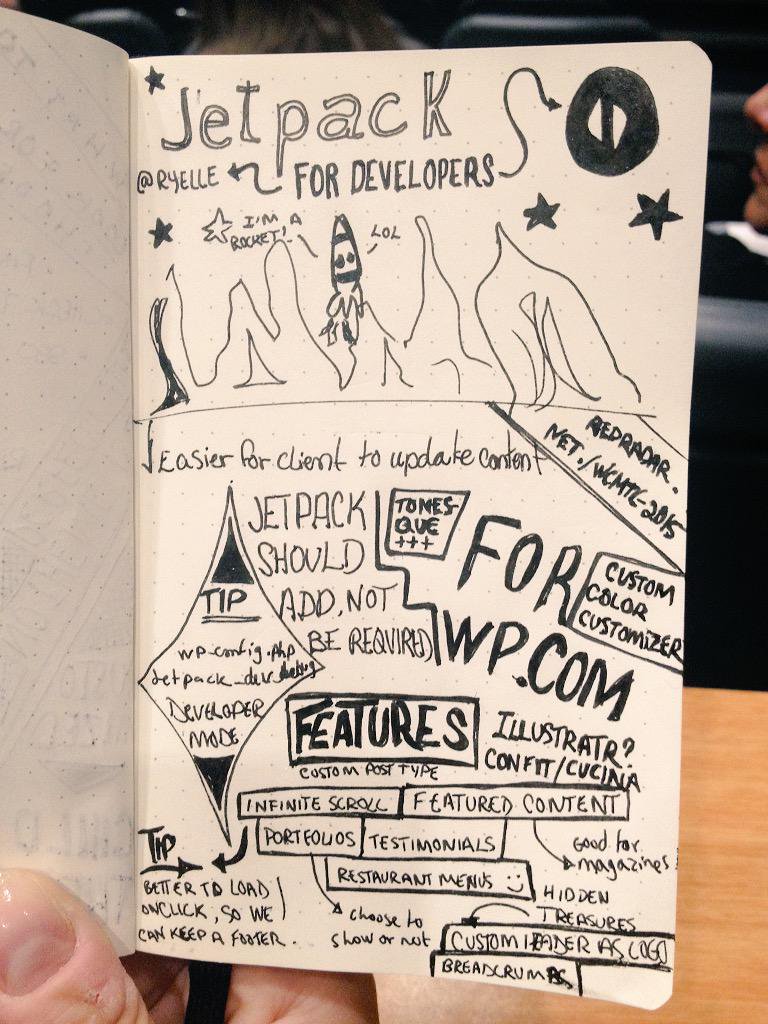 Jetpack
@RYELLE
FOR DEVELOPERS
I'M A
ROCKET!
LOL
REDRADAR.
NET./WCMTL-2015
Easier for client to update content
JETPACK
SHOULD
ADD, NOT
BE REQUIRED
TONES-
QUE
+++
FOR
WP.COM
CUSTOM
COLOR
CUSTOMIZER
TIP
wp_config.php
Jetpack_dev_debug
DEVELOPER
MODE
FEATURES
ILLUSTRATR?
CONFIT/CUCINA
CUSTOM POST TYPE
INFINITE SCROLL
FEATURED CONTENT
PORTFOLIOS
TESTIMONIALS
Good for
magazines
RESTAURANT MENUS
TIP
BETTER TO LOAD
ONCLICK, SO WE
CAN KEEP A FOOTER.
choose to
show or not
HIDDEN
TREASURES
CUSTOM HEADER AS LOGO
BREADCRUMBS